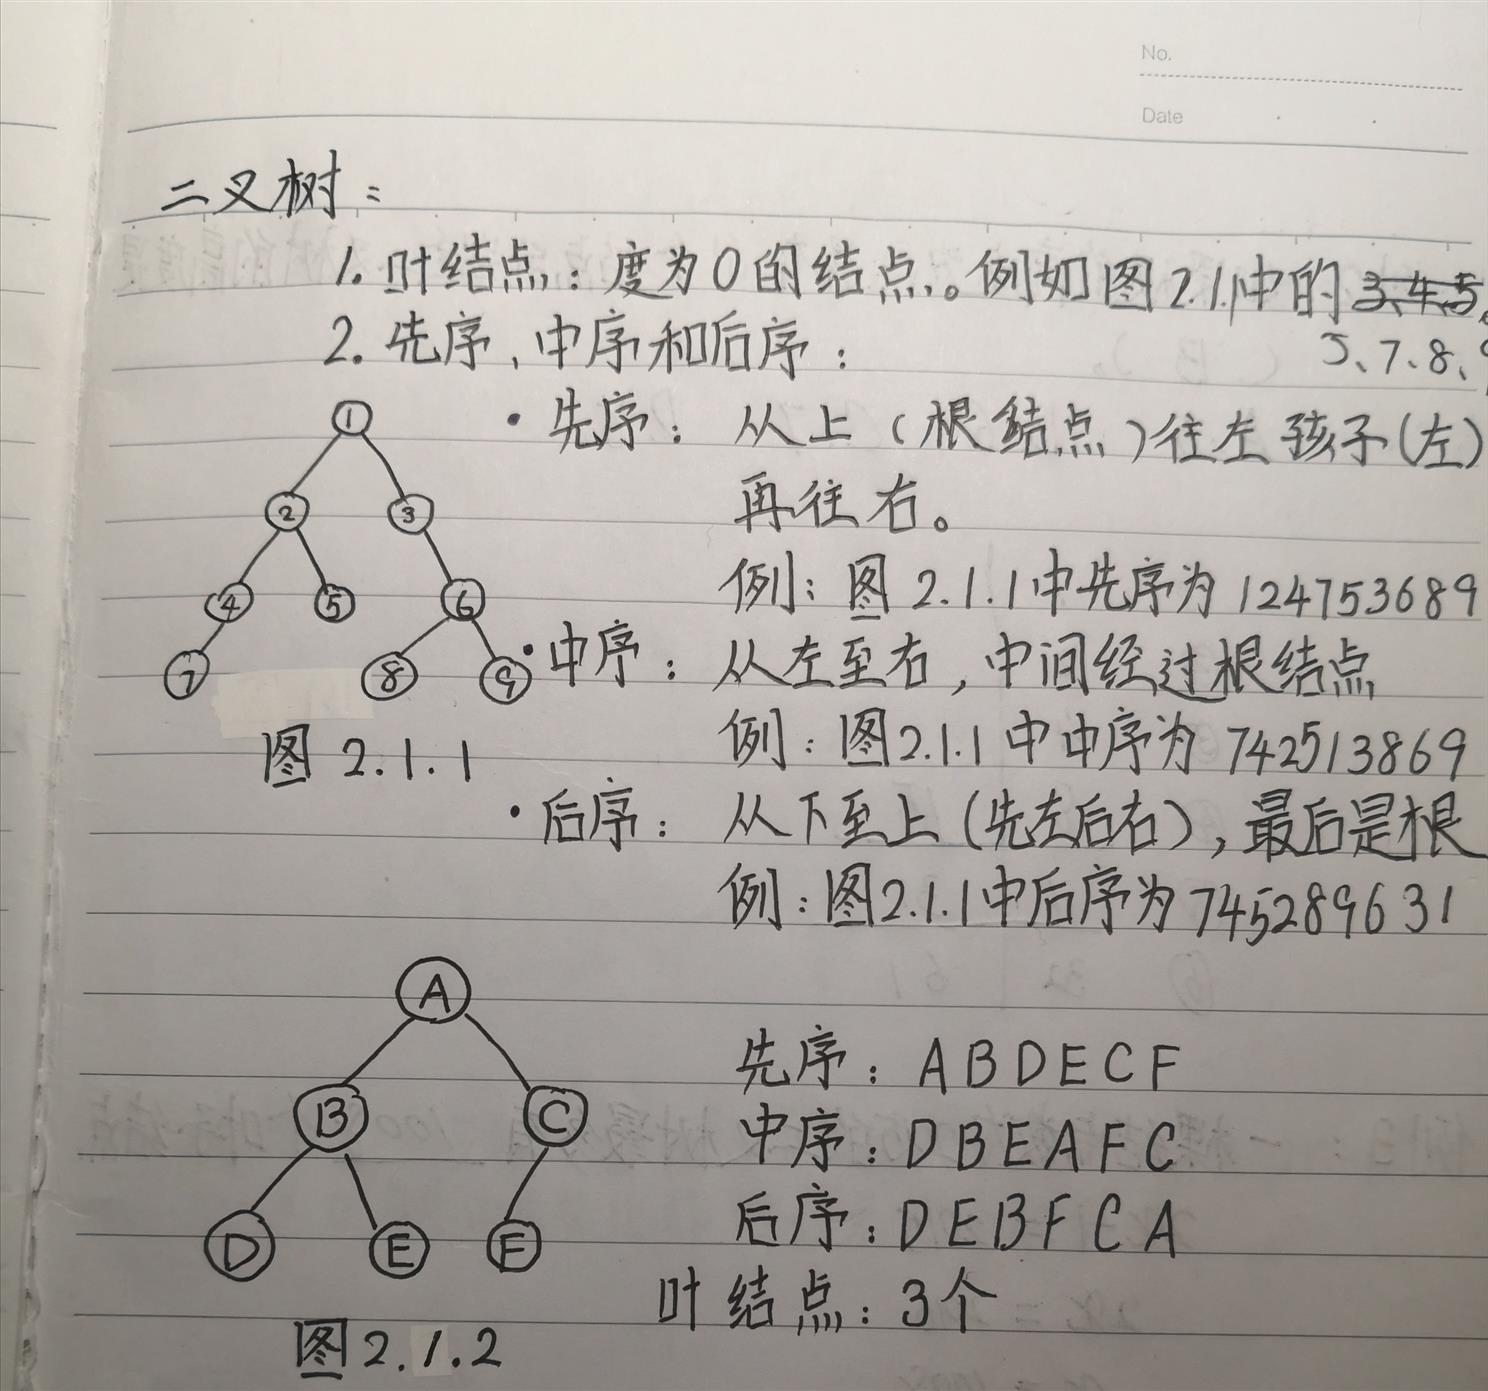 No.
Date
二叉树：
1. 叶结点：度为0的结点。例如图2.1.1中的 3、4、5、
5、7、8、9
2. 先序、中序和后序：
• 先序： 从上（根结点）往左孩子（左）
再往右。
例：图2.1.1中先序为124753689
• 中序： 从左至右，中间经过根结点
例：图2.1.1中中序为742513869
• 后序： 从下至上（先左后右），最后是根
例：图2.1.1中后序为745289631
1
2 3
4 5 6
7 8 9
图 2.1.1
A
B C
D E F
图2.1.2
先序：ABDECF
中序：DBEAFC
后序：DEBFCA
叶结点：3个